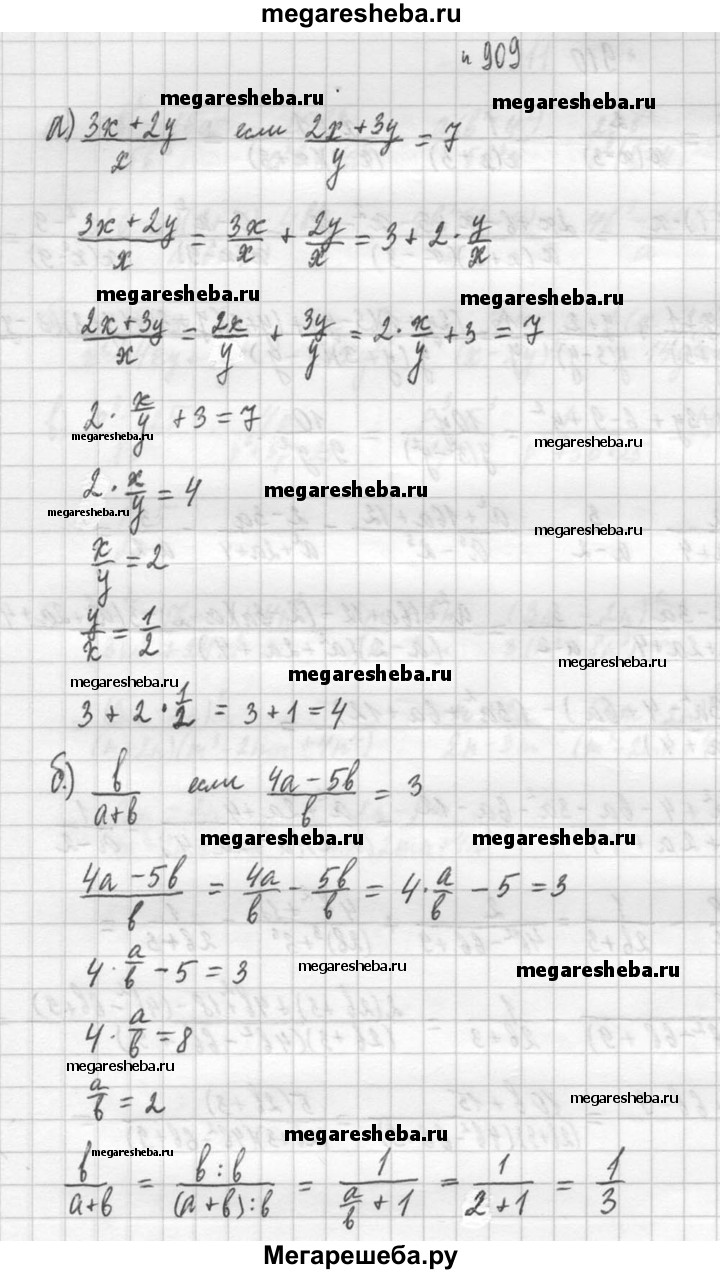 megaresheba.ru
н 909
megaresheba.ru megaresheba.ru
а) (3x + 2y)/x если (2x + 3y)/y = 7
(3x + 2y)/x = 3x/x + 2y/x = 3 + 2 · y/x
megaresheba.ru megaresheba.ru
(2x + 3y)/x = 2x/y + 3y/y = 2 · x/y + 3 = 7
2 · x/y + 3 = 7
megaresheba.ru megaresheba.ru
2 · x/y = 4 megaresheba.ru
megaresheba.ru megaresheba.ru
x/y = 2
y/x = 1/2
megaresheba.ru megaresheba.ru megaresheba.ru
3 + 2 · 1/2 = 3 + 1 = 4
б.) b/(a+b) если (4a − 5b)/b = 3
megaresheba.ru megaresheba.ru
(4a − 5b)/b = 4a/b − 5b/b = 4 · a/b − 5 = 3
4 · a/b − 5 = 3 megaresheba.ru megaresheba.ru
4 · a/b = 8
megaresheba.ru
a/b = 2 megaresheba.ru
megaresheba.ru megaresheba.ru
b/(a+b) = (b : b)/((a + b) : b) = 1/(a/b + 1) = 1/(2 + 1) = 1/3
Мегарешеба.ру